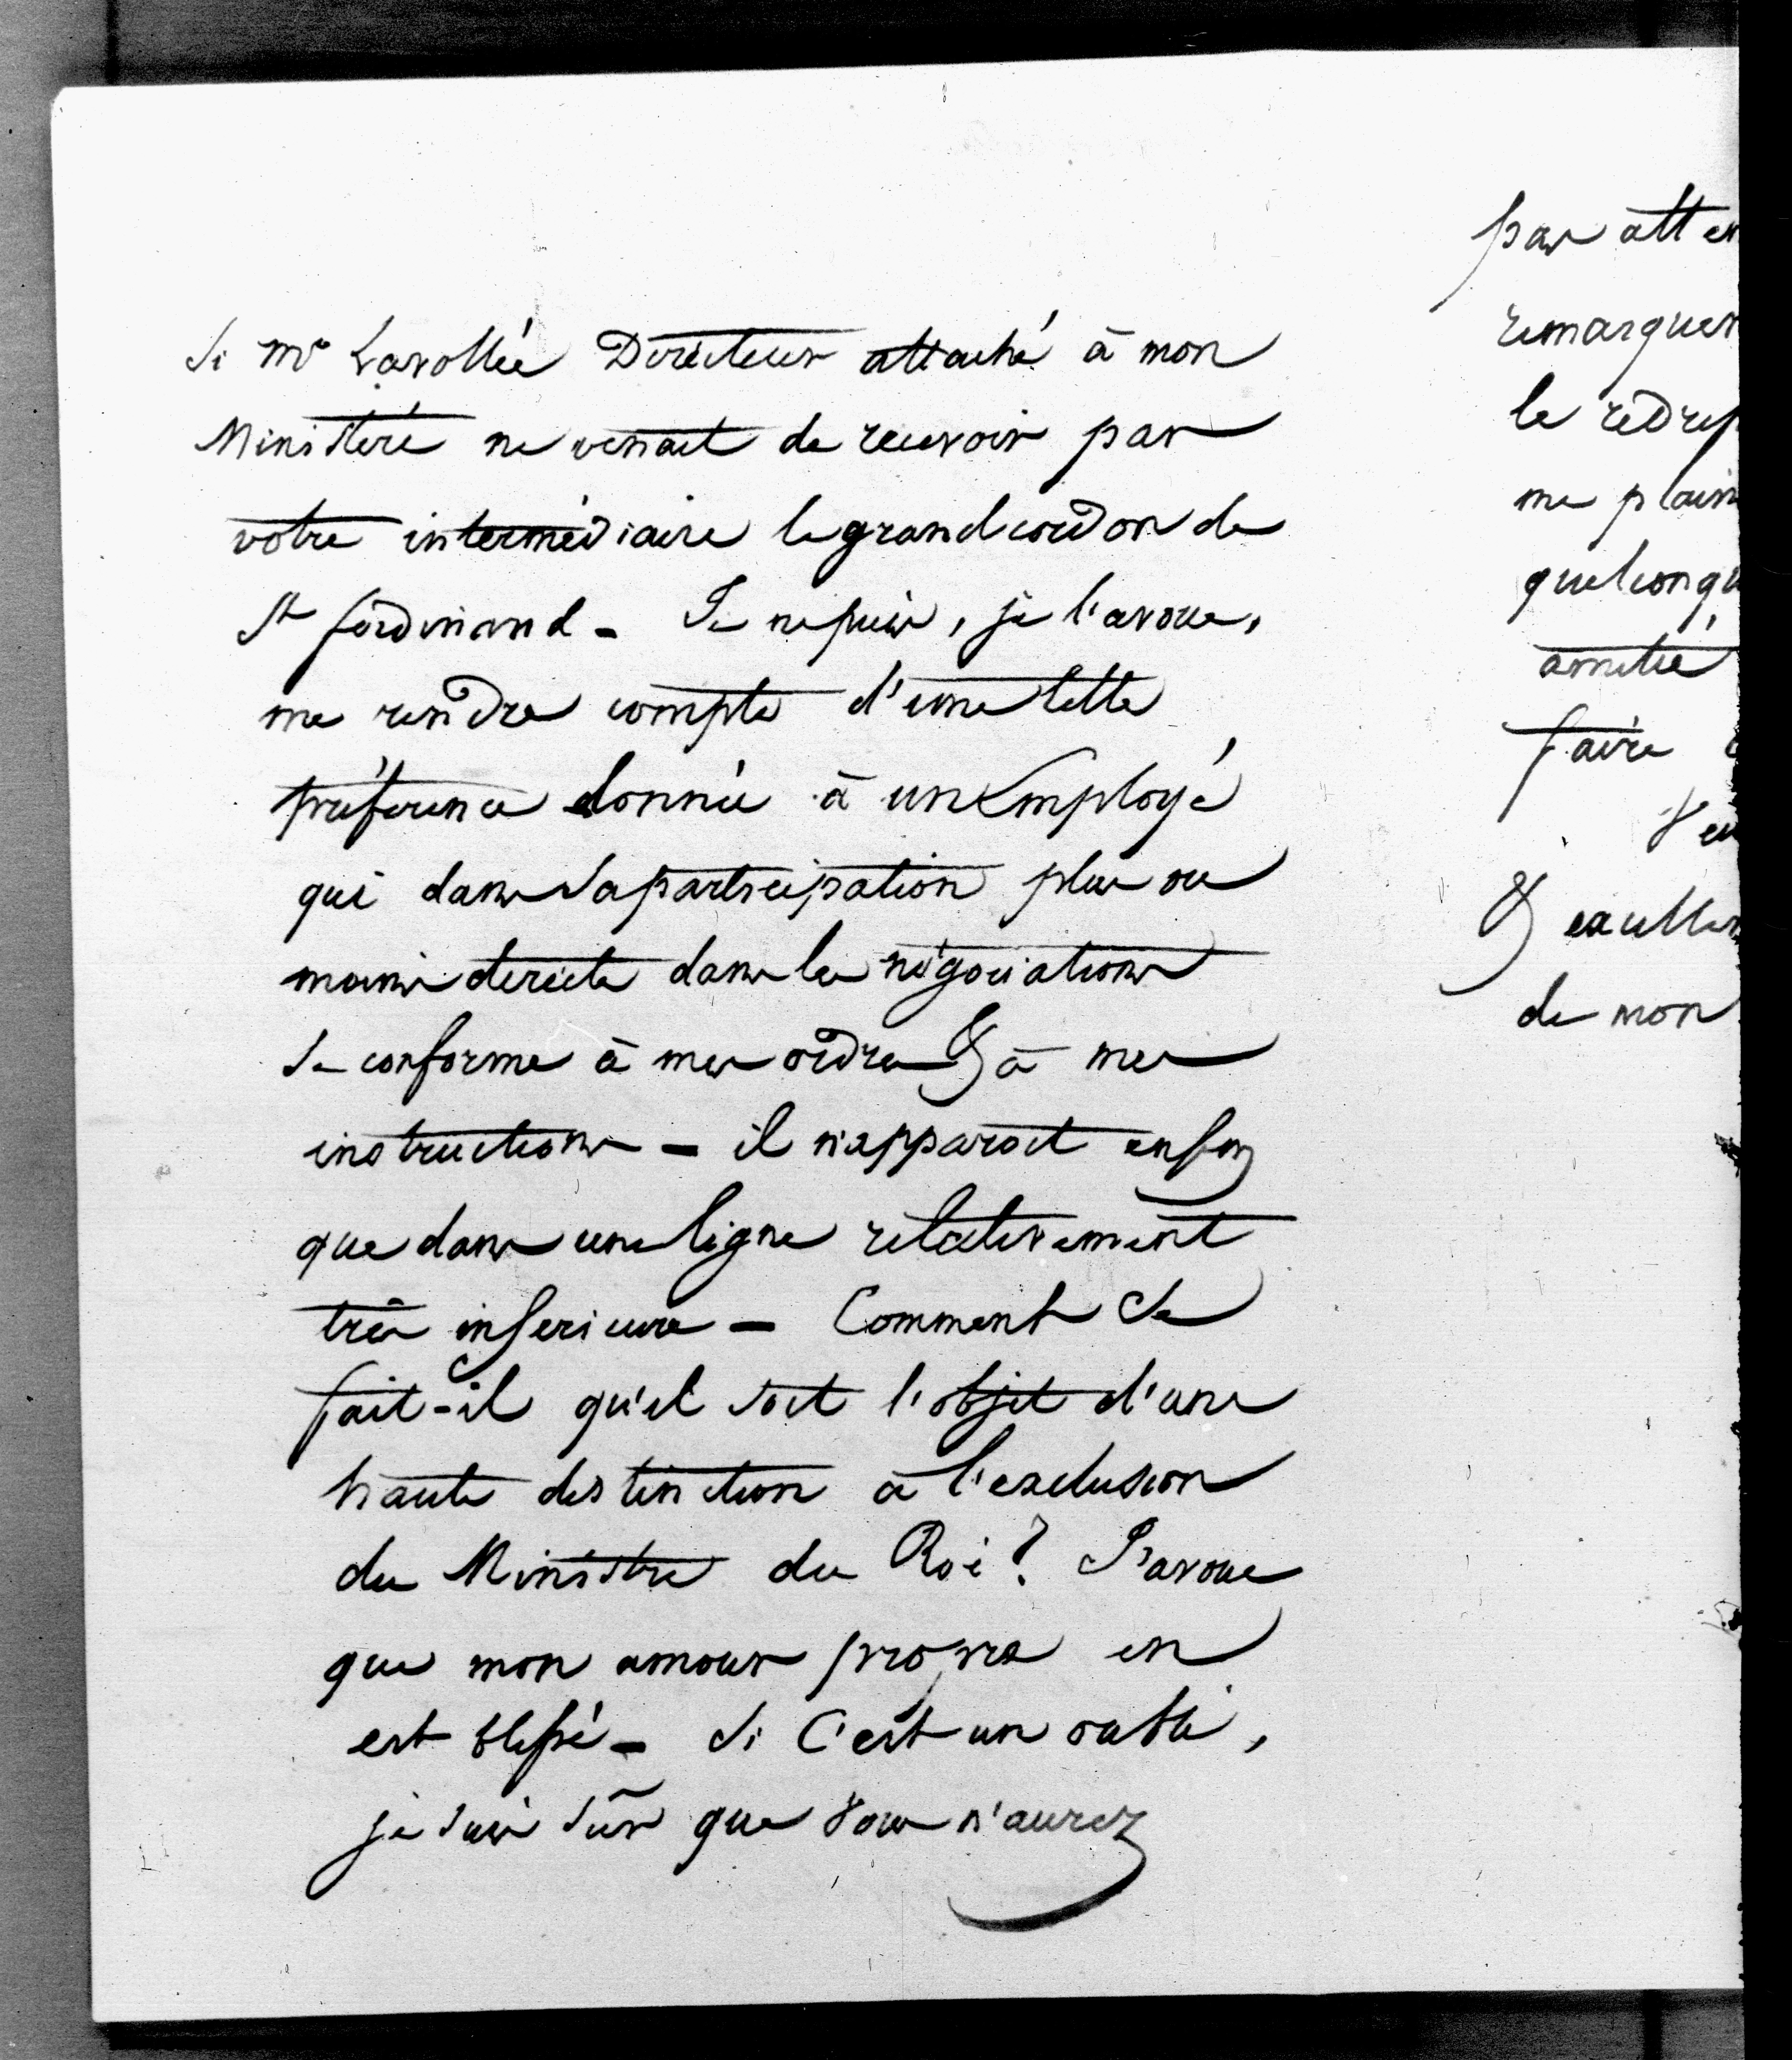 Si Mr Lavollée Directeur attaché à mon
Ministère ne venait de recevoir par
votre intermédiaire le grand cordon de
St ferdinand - Je ne puis, je l'avoue,
me rendre compte d'une telle
préférence donnée à un Employé
qui dans sa participation plus ou
moins directe dans les négociations
se conforme à mes ordres & à mes
instructions - il n'apparoit enfin
que dans une ligne relativement
très inferieure - Comment se
fait-il qu'il soit l'objet d'une
haute distinction à l'exclusion
du Ministre du Roi? J'avoue
que mon amour propre en
est blessé - Si C'est un oubli,
je suis sûr que vous n'aurez
pas atten
remarquer
le redres
me plain
quelconqu
amitié
faire
Veu
& excellen
de mon